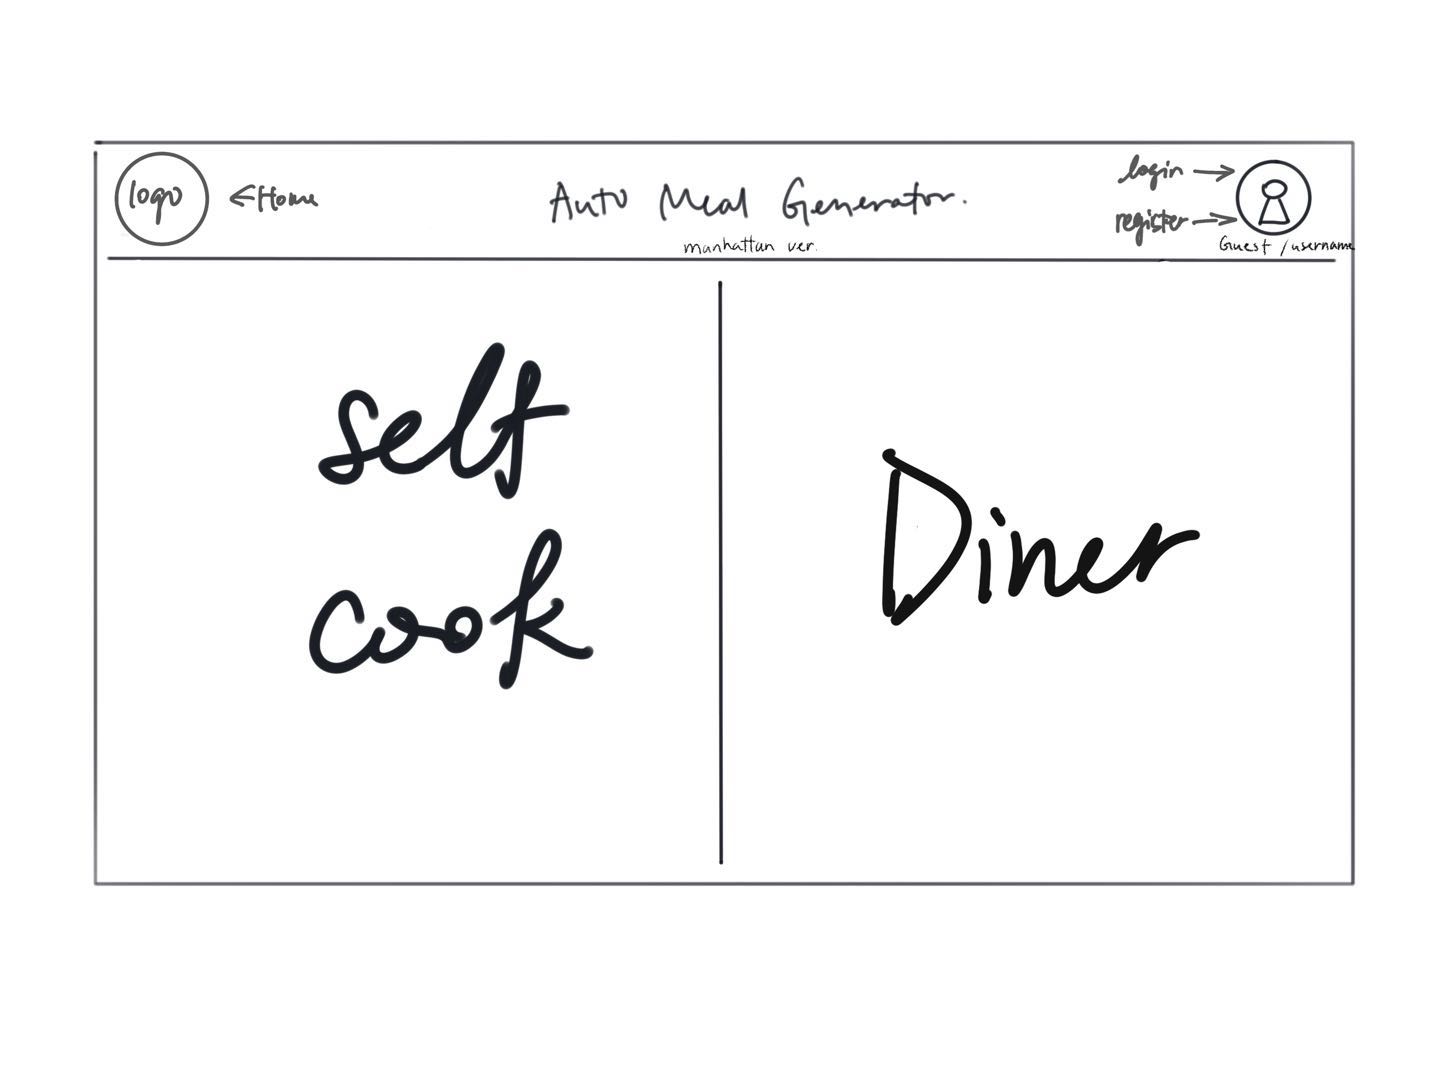 logo
←Home
Auto Meal Generator.
manhattan ver.
login →
register →
Guest /username
self
cook
Diner